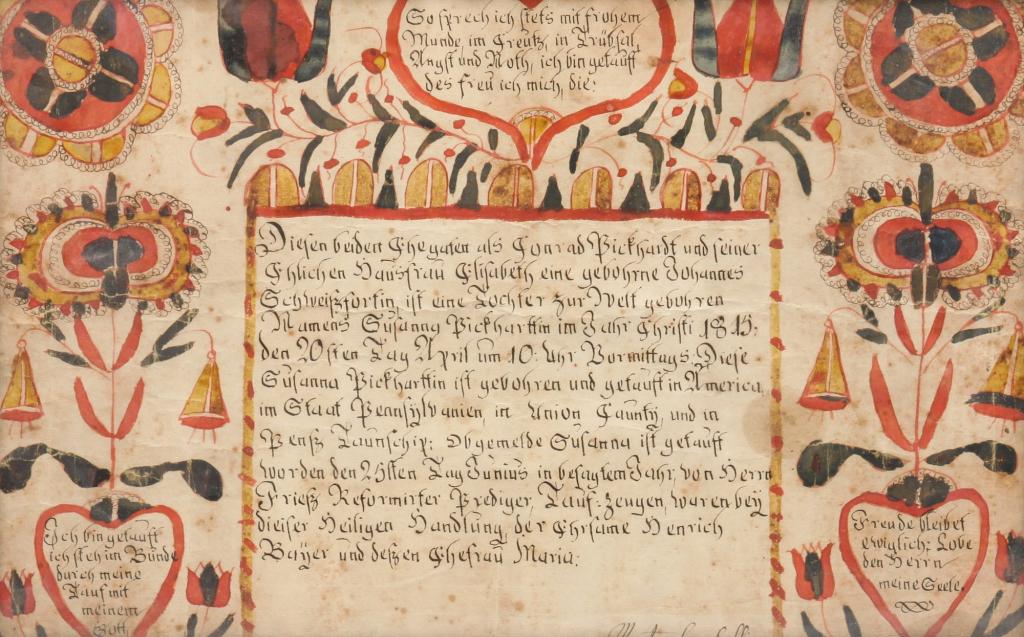 So sprech ich stets mit frohem
Munde, im Creutz, in Trübsal,
Angst und Noth, ich bin getauft
des freu ich mich, die:
Diesen beiden Ehegaten als Conrad Pickhardt und seiner
Ehlichen Hausfrau Elisabeth eine gebohrne Johannes
Schweißfortin, ist eine Tochter zur Welt gebohren
Namens Susanna Pickharttin im Jahr Christi 1815:
den 20sten Tag April um 10: Uhr Vormittags: Diese
Susanna Pickharttin ist gebohren und getauft in America,
im Staat Pennsylvanien, in Union Caunty, und in
Penß Taunschip: Obgemelde Susanna ist getauft
worden den 25sten Tag Junius in besagtem Jahr, von Herrn
Frieß Reformirter Prediger, Tauf-zeugen, waren bey
dieiser Heiligen Handlung, der Ehrsame Henrich
Bayer und deßen Ehefrau Maria:
Ich bin getauft
ich steh im Bunde
durch meine
Tauf mit
meinem
Gott
Freude bleibet
ewiglich: Lobe
den Herrn
meine Seele.